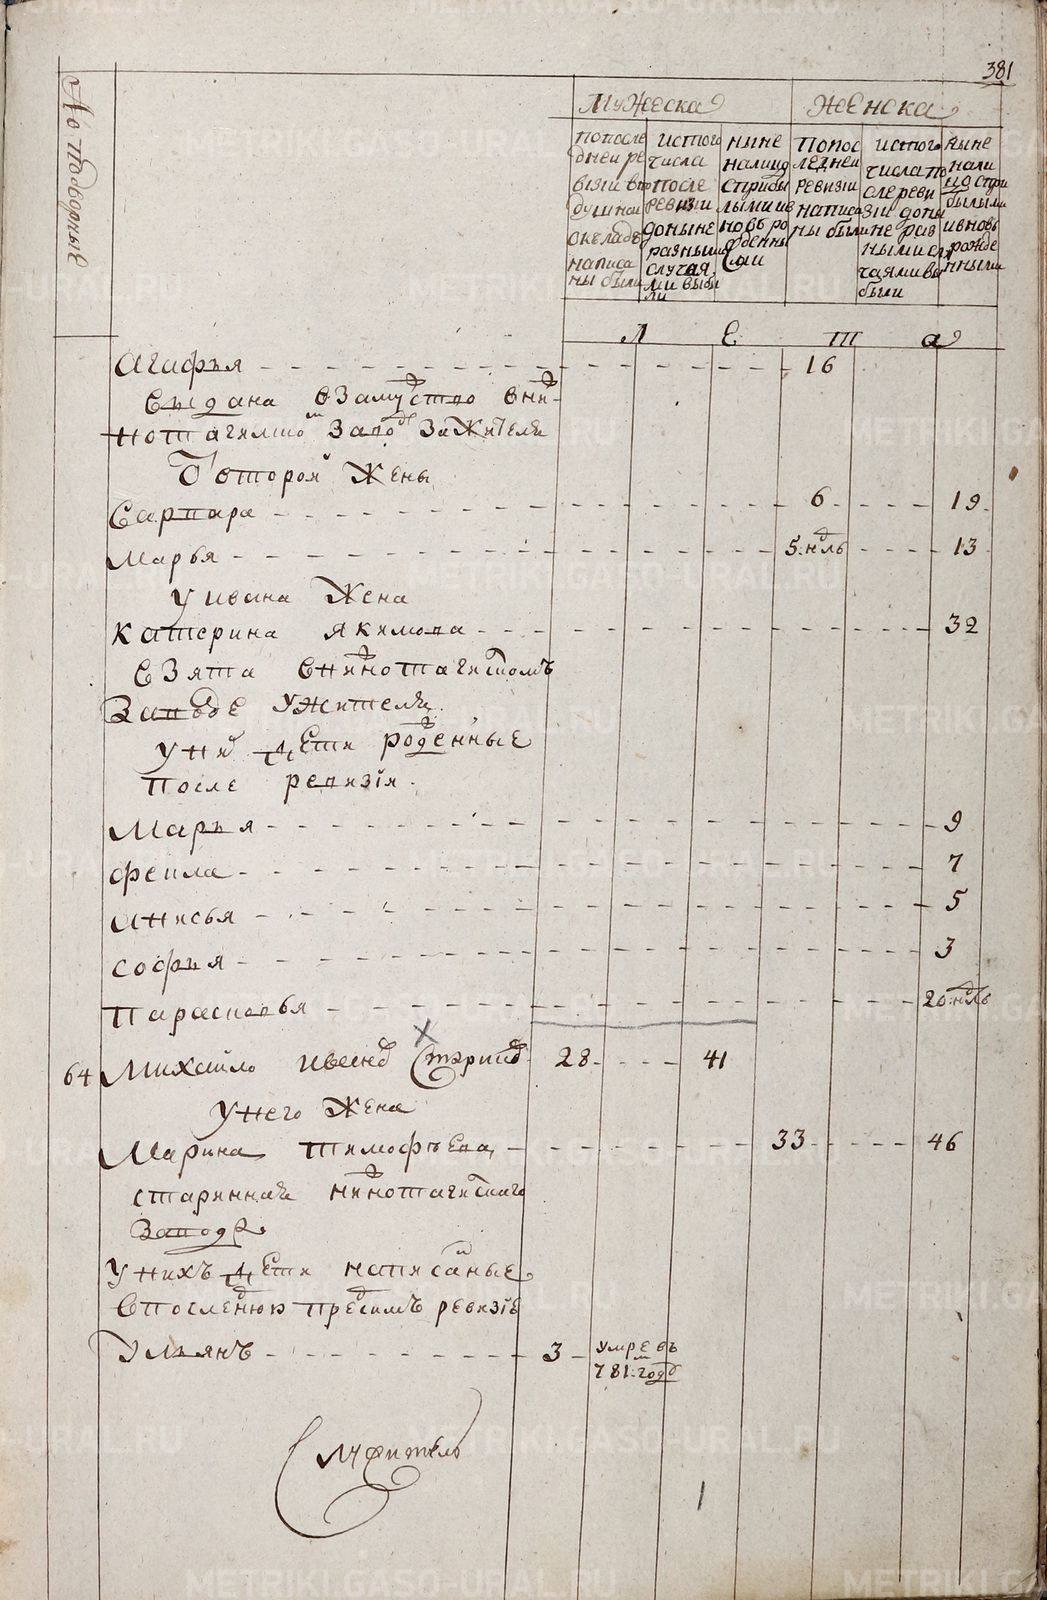 381
№ подворные
Мужеска
Женска
попосле
дней ре
визии в по
душной
окладъ
написа
ны были
истого
числа
после
ревизии
доныне
разными
случая
ми выбы
ли
ныне
налицо
сприбы
лыми ив
новь ро
жденны
ми
попос
ледней
ревизии
написа
ны были
истого
числа по
слереви
зии доны
не раз
ными слу
чаями вы
были
ныне
нали
цо спри
былыми
ивновь
рожде
нными
Л Е Т а
Агафья 16
выдана взамуство внив
нотагилшо заво зажителя
Отторой жены
Варвара 6 19
Марья 5 н᷈ль 13
у ивана жена
катерина якимова 32
взята внивнотагилском
заводе ужителя
у них дети рожденные
после ревизiи
Марья 9
феила 7
Анисья 5
софья 3
парасковья 20 нль
64 Михайло ивановъ 28 41
унего жена
Марина тимофѣева 33 46
старинная нивнотагилскаго
завода
унихъ дети написаные
впоследнюю пред симъ ревизiю
Ульянъ 3 умре въ
781 годѣ